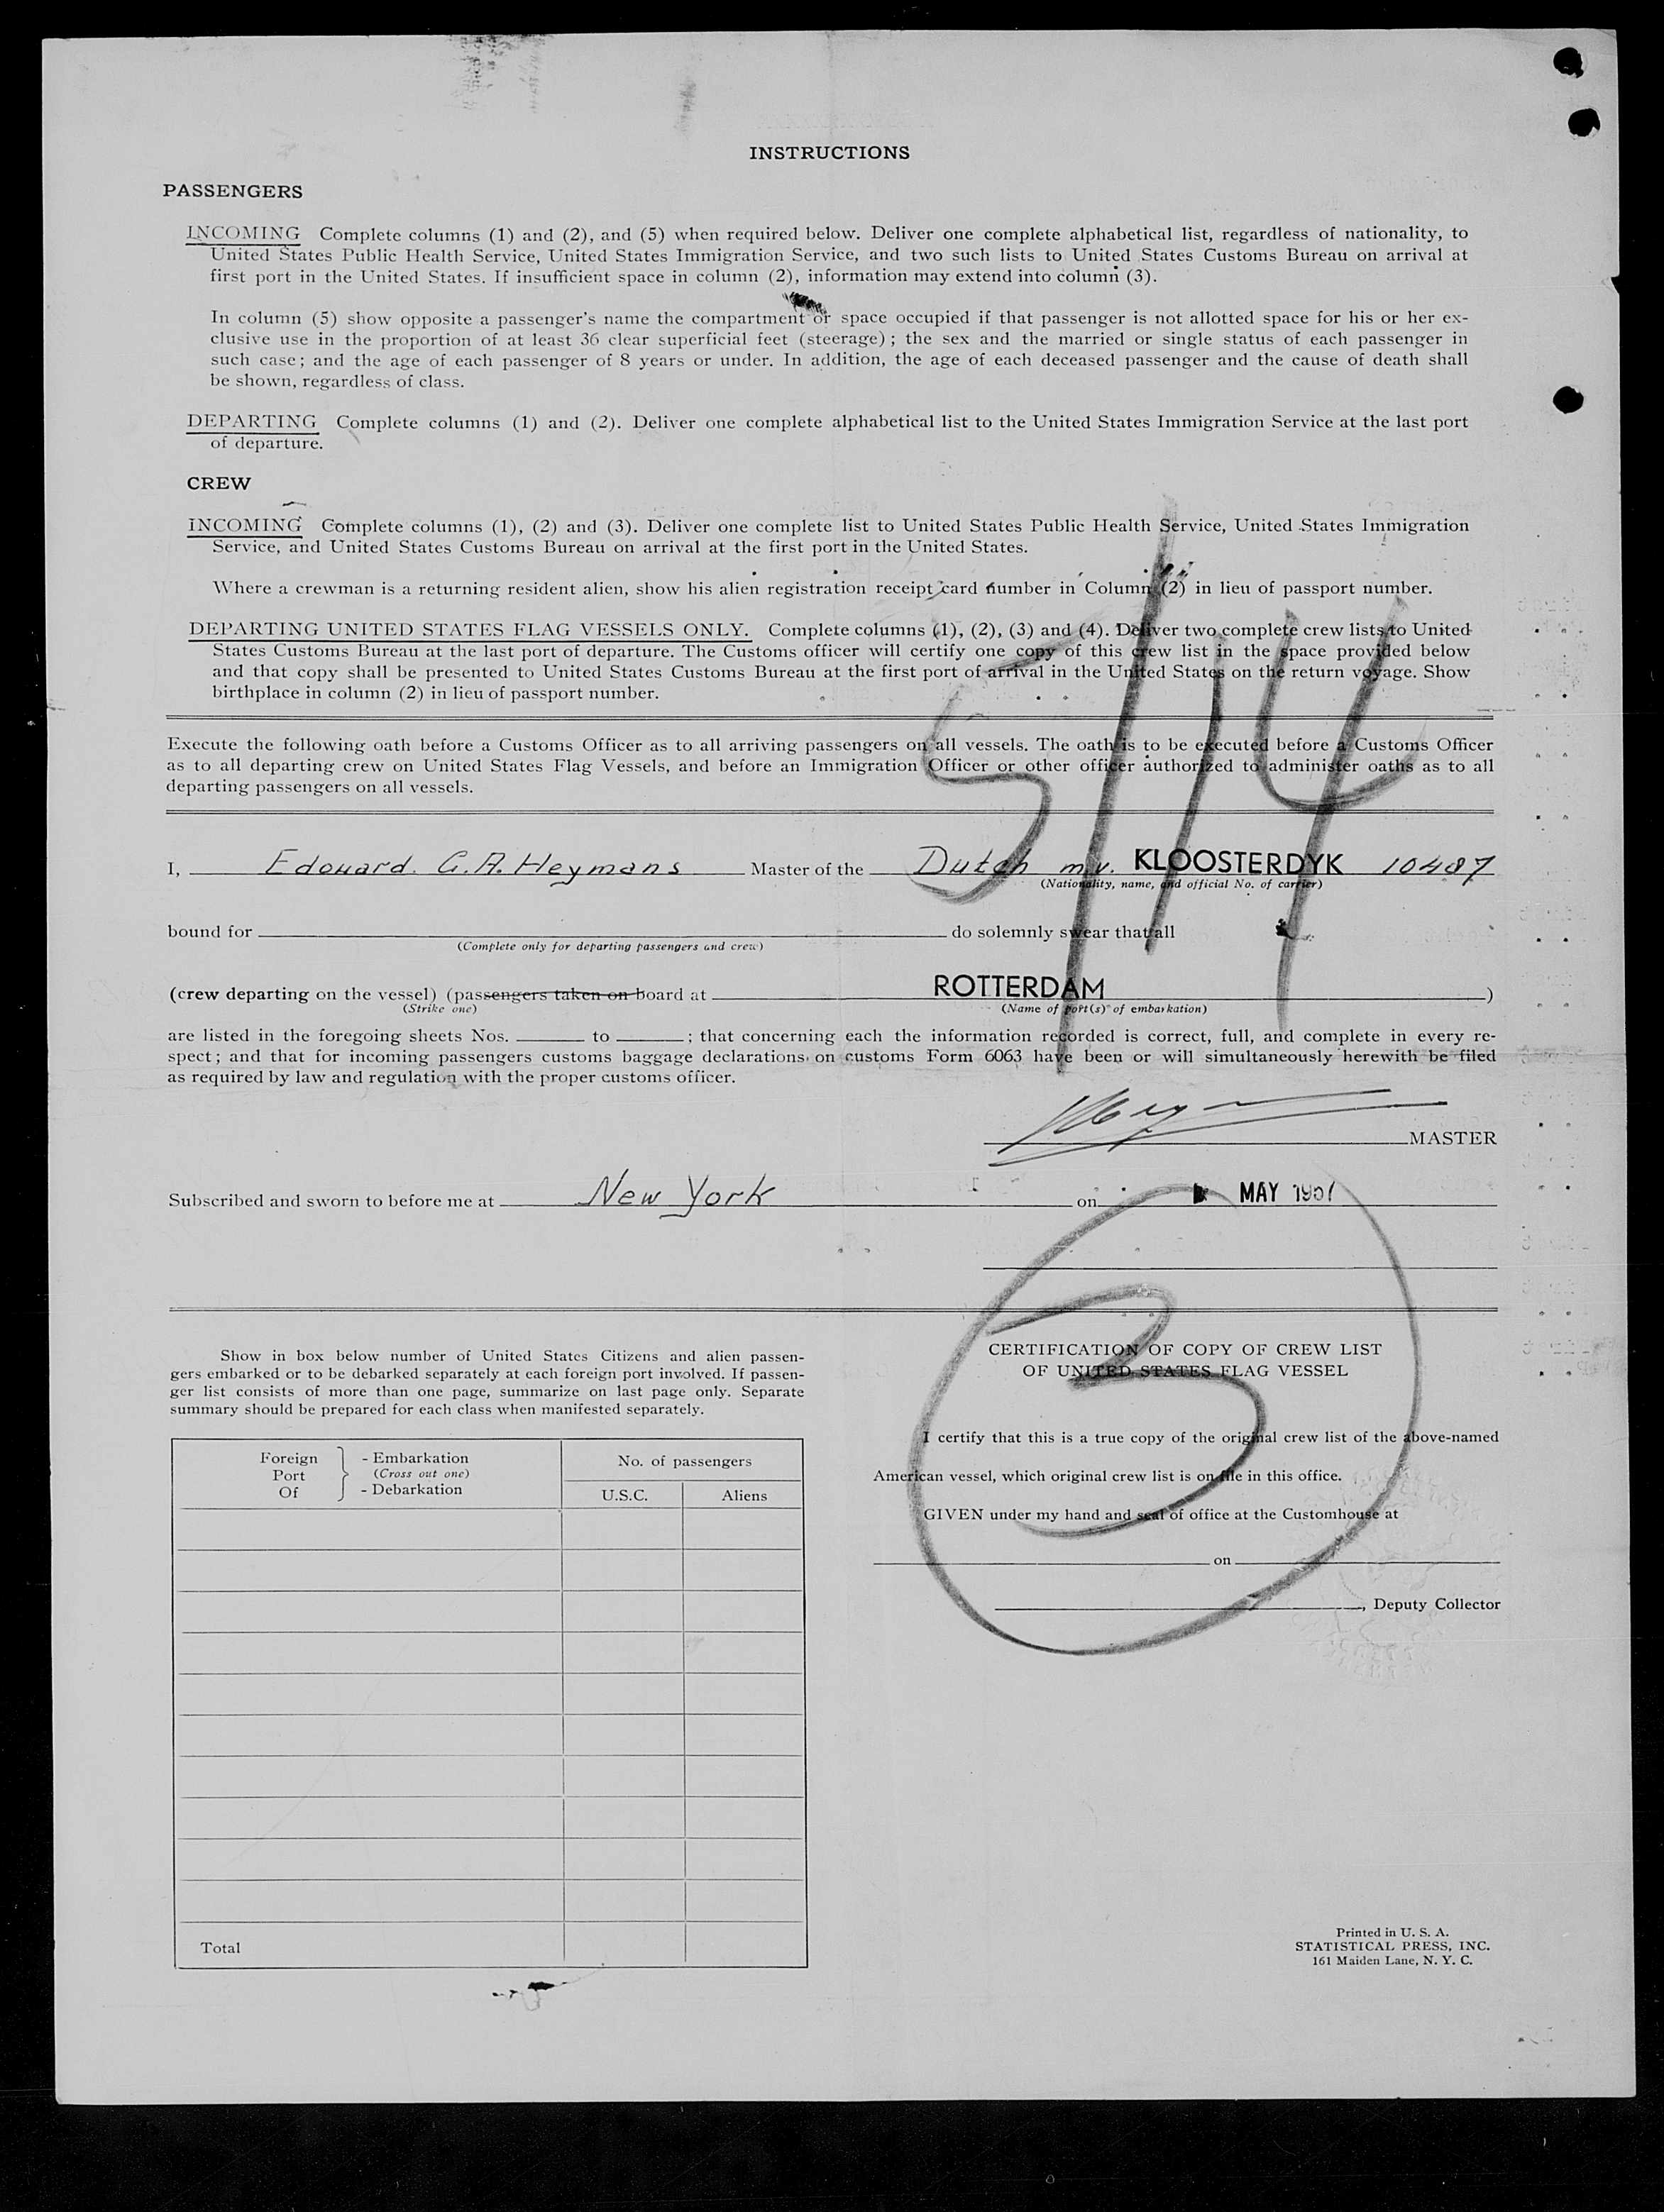 INSTRUCTIONS
PASSENGERS
INCOMING Complete columns (1) and (2), and (5) when required below. Deliver one complete alphabetical list, regardless of nationality, to
United States Public Health Service, United States Immigration Service, and two such lists to United States Customs Bureau on arrival at
first port in the United States. If insufficient space in column (2), information may extend into column (3).
In column (5) show opposite a passenger's name the compartment or space occupied if that passenger is not allotted space for his or her ex-
clusive use in the proportion of at least 36 clear superficial feet (steerage); the sex and the married or single status of each passenger in
such case; and the age of each passenger of 8 years or under. In addition, the age of each deceased passenger and the cause of death shall
be shown, regardless of class.
DEPARTING Complete columns (1) and (2). Deliver one complete alphabetical list to the United States Immigration Service at the last port
of departure.
CREW
INCOMING Complete columns (1), (2) and (3). Deliver one complete list to United States Public Health Service, United States Immigration
Service, and United States Customs Bureau on arrival at the first port in the United States.
Where a crewman is a returning resident alien, show his alien registration receipt card number in Column (2) in lieu of passport number.
DEPARTING UNITED STATES FLAG VESSELS ONLY. Complete columns (1), (2), (3) and (4). Deliver two complete crew lists to United
States Customs Bureau at the last port of departure. The Customs officer will certify one copy of this crew list in the space provided below
and that copy shall be presented to United States Customs Bureau at the first port of arrival in the United States on the return voyage. Show
birthplace in column (2) in lieu of passport number.
5/14
Execute the following oath before a Customs Officer as to all arriving passengers on all vessels. The oath is to be executed before a Customs Officer
as to all departing crew on United States Flag Vessels, and before an Immigration Officer or other officer authorized to administer oaths as to all
departing passengers on all vessels.
I, Edouard. G.A. Heymans Master of the Dutch m.v. KLOOSTERDYK 10487
(Nationality, name, and official No. of carrier)
bound for do solemnly swear that all
(Complete only for departing passengers and crew)
(crew departing on the vessel) (passengers taken on board at ROTTERDAM )
(Strike one) (Name of port(s) of embarkation)
are listed in the foregoing sheets Nos. to ; that concerning each the information recorded is correct, full, and complete in every re-
spect; and that for incoming passengers customs baggage declarations on customs Form 6063 have been or will simultaneously herewith be filed
as required by law and regulation with the proper customs officer.
MASTER
Subscribed and sworn to before me at New York on MAY 1957
3
Show in box below number of United States Citizens and alien passen-
gers embarked or to be debarked separately at each foreign port involved. If passen-
ger list consists of more than one page, summarize on last page only. Separate
summary should be prepared for each class when manifested separately.
Foreign Port Of } - Embarkation
(Cross out one)
- Debarkation
No. of passengers
U.S.C. Aliens
Total
CERTIFICATION OF COPY OF CREW LIST
OF UNITED STATES FLAG VESSEL
I certify that this is a true copy of the original crew list of the above-named
American vessel, which original crew list is on file in this office.
GIVEN under my hand and seal of office at the Customhouse at
on
, Deputy Collector
Printed in U. S. A.
STATISTICAL PRESS, INC.
161 Maiden Lane, N. Y. C.